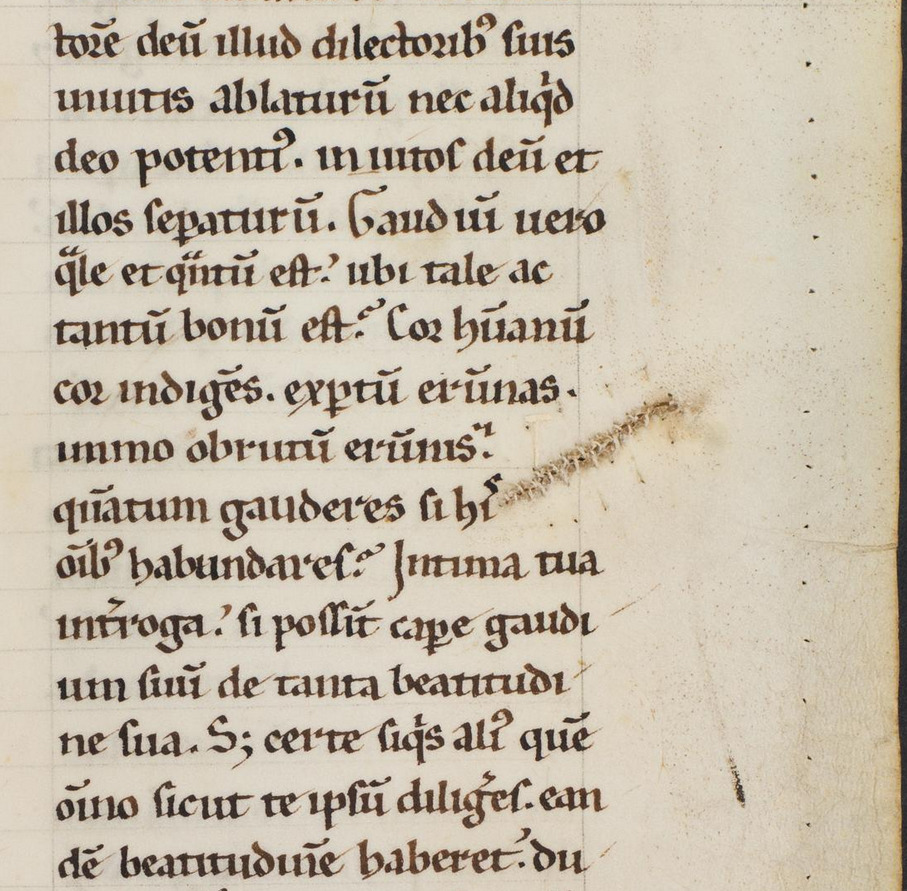 torē deū illud dilectorib᷒ suis
inuitis ablaturū nec aliq̇d
deo potenti᷒. inuitos deū et
illos sep̲aturū. Gaudiū uero
qᷓle et qᷓntū est? ubi tale ac
tantū bonū est? Cor hūanū
cor indigēs. exp̲tū erūnas.
immo obrutū erūnis.
qūatum gauderes si hiˢ
oīb᷒ habundares? Intima tua
int̄roga? si possūt cap̲e gaudi
um suū de tanta beatitudi
ne sua. S; certe siq̇s ali᷒ quē
oīno sicut te ipsū diliḡes. ean
dē beatitudinē haberet. du